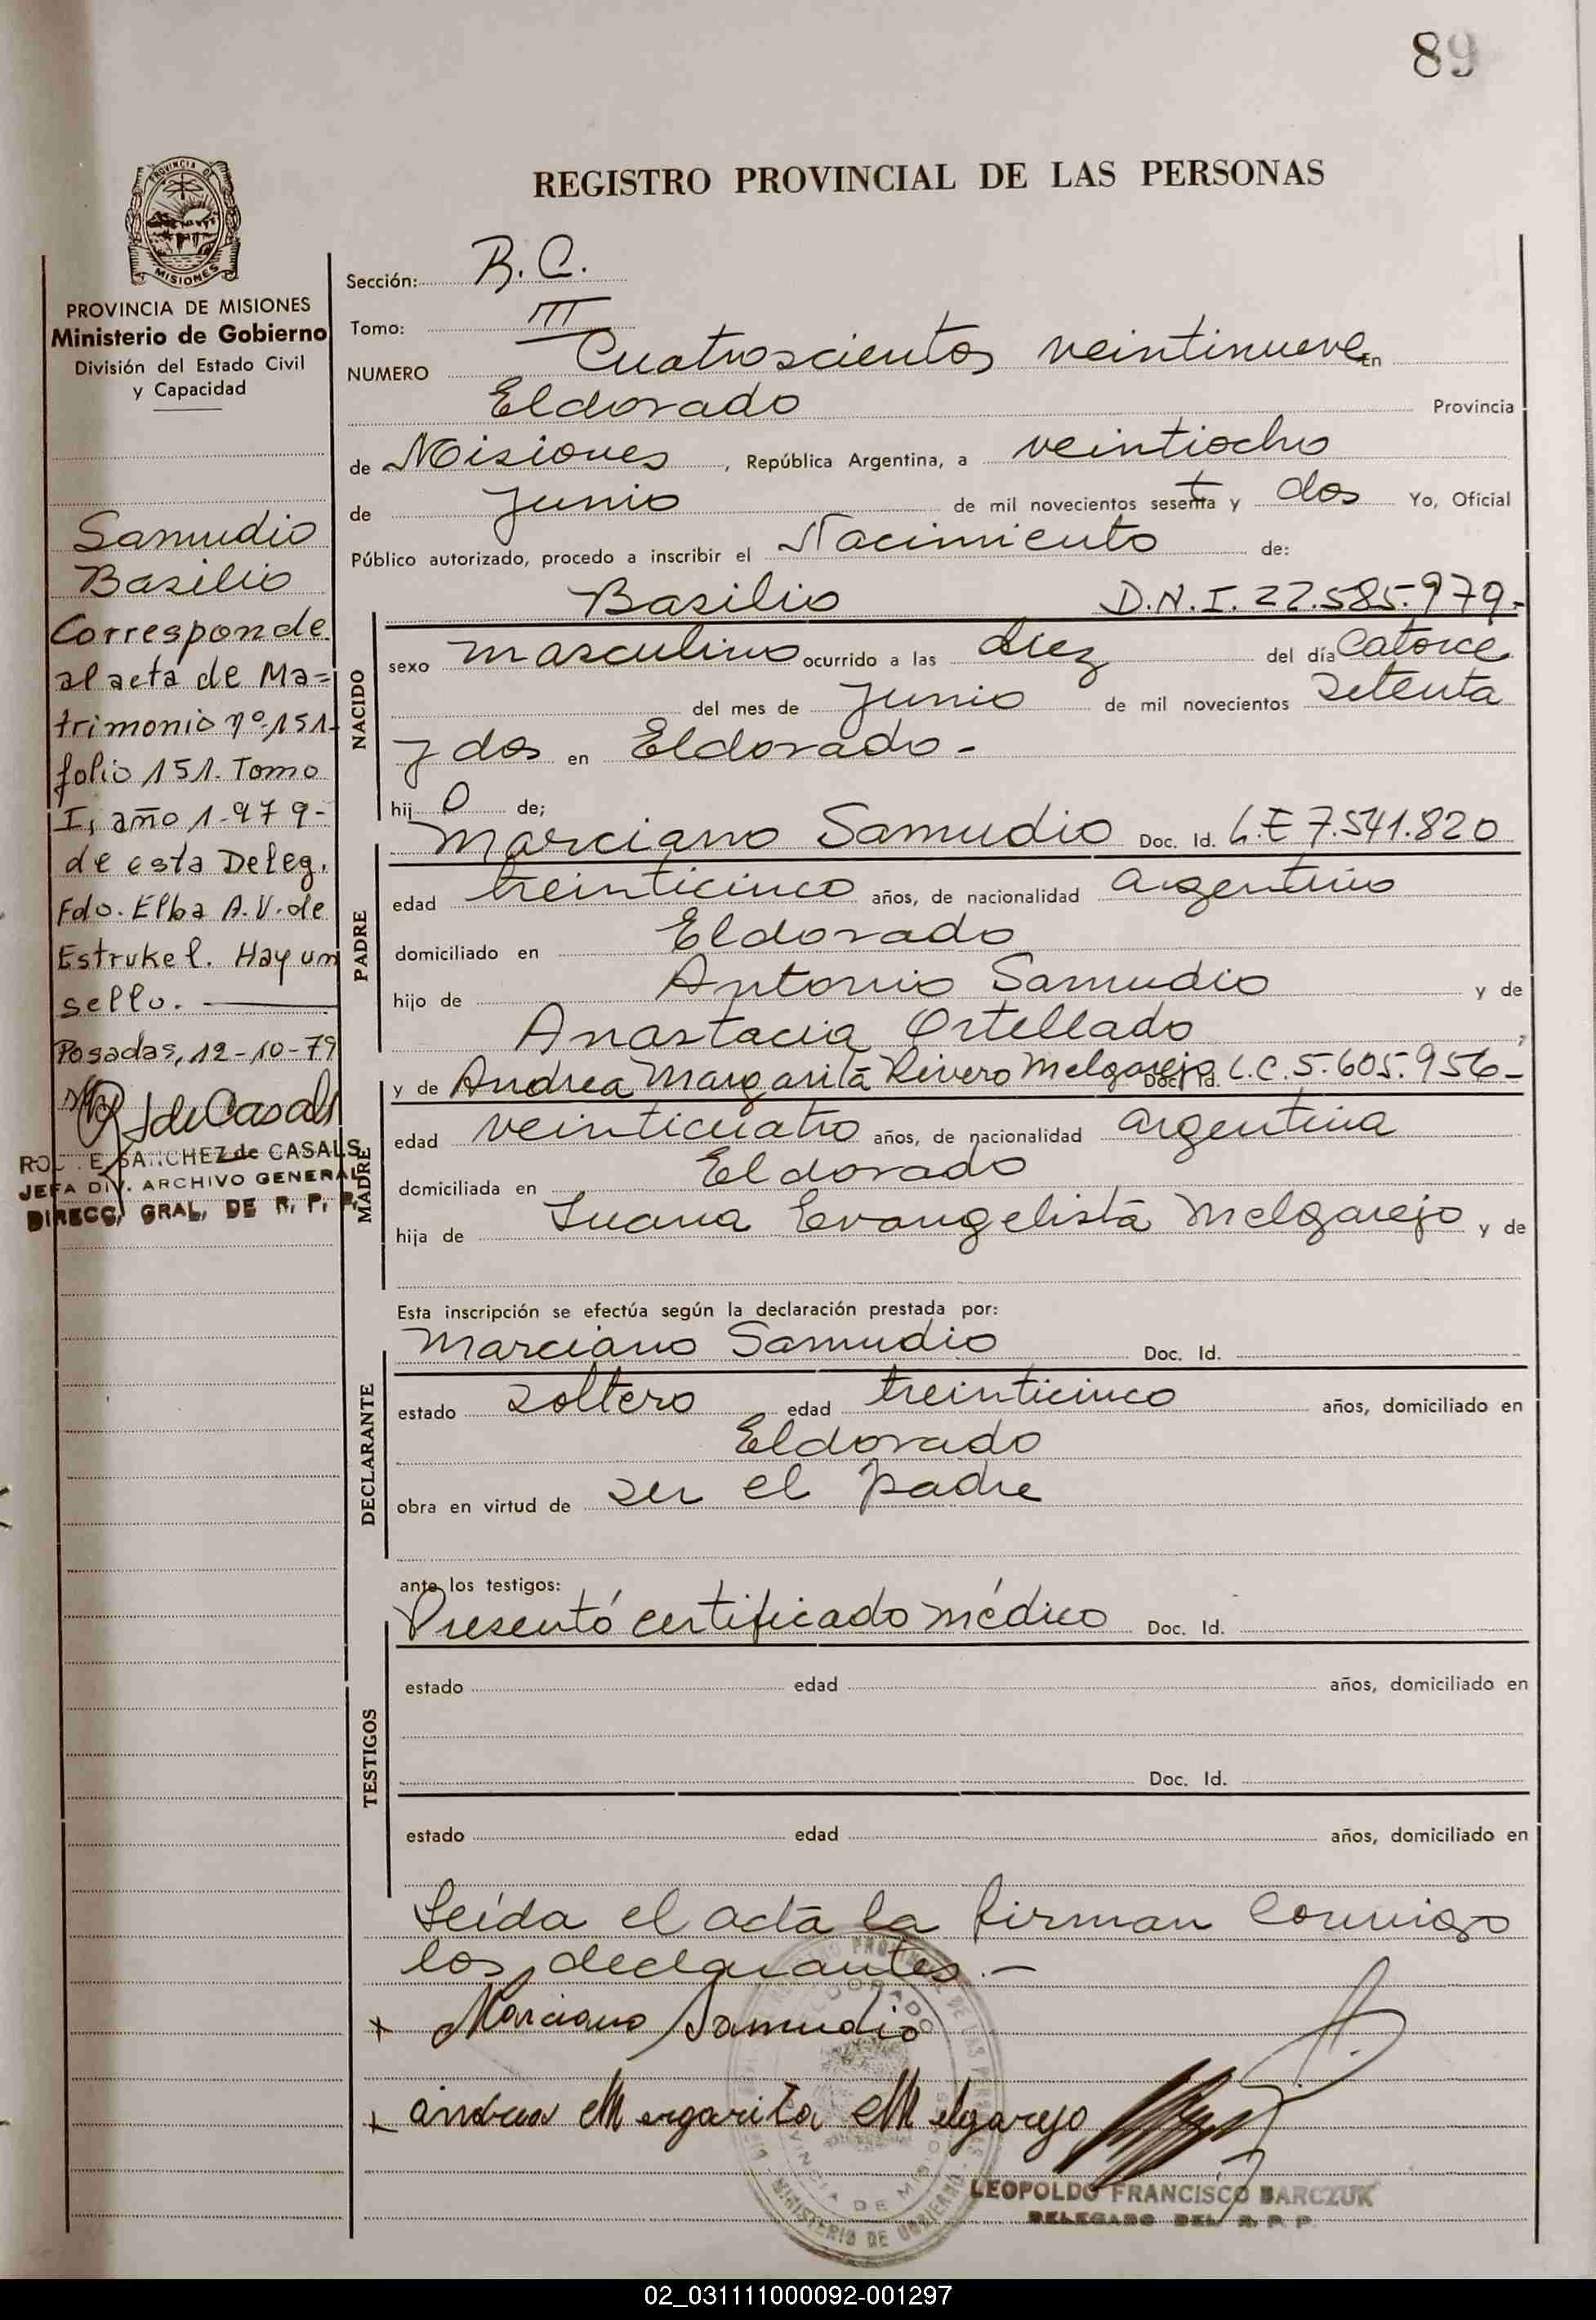 89
REGISTRO PROVINCIAL DE LAS PERSONAS
PROVINCIA
MISIONES
PROVINCIA DE MISIONES
Ministerio de Gobierno
División del Estado Civil
y Capacidad
Samudio
Basilio
Corresponde
al acta de Ma=
trimonio nº 151-
folio 151. Tomo
I, año 1.979-
de esta Deleg.
Fdo. Elba A. V. de
Estrukel. Hay un
sello.
Posadas, 12-10-79
SANCHEZ de CASALS
JEFA DIV. ARCHIVO GENERAL
DIRECC. GRAL. DE R. P. P.
Sección: R. C.
Tomo: III
NUMERO Cuatroscientos veintinueve En
Eldorado Provincia
de Misiones, República Argentina, a veintiocho
de Junio de mil novecientos sesenta y dos Yo, Oficial
Público autorizado, procedo a inscribir el Nacimiento de:
NACIDO
Basilio D.N.I. 22.585.979-
sexo masculino ocurrido a las diez del día Catorce
del mes de Junio de mil novecientos setenta
y dos en Eldorado-
hij o de;
PADRE
Marciano Samudio Doc. Id. L.E 7.541.820
edad treinticinco años, de nacionalidad argentino
domiciliado en Eldorado
hijo de Antonio Samudio y de
Anastacia Ortellado ;
MADRE
y de Andrea Margarita Rivero Melgarejo Doc. Id. L.C. 5.605.956-
edad veinticuatro años, de nacionalidad argentina
domiciliada en Eldorado
hija de Juana Evangelista Melgarejo y de
Esta inscripción se efectúa según la declaración prestada por:
DECLARANTE
Marciano Samudio Doc. Id.
estado soltero edad treinticinco años, domiciliado en
Eldorado
obra en virtud de ser el padre
ante los testigos:
TESTIGOS
Presentó certificado médico Doc. Id.
estado edad años, domiciliado en
Doc. Id.
estado edad años, domiciliado en
Leída el acta la firman conmigo
los declarantes.-
x Marciano Samudio
x andrea Mergarita Melgarejo
LEOPOLDO FRANCISCO BARCZUK
DELEGADO DEL R. P. P.
ELDORADO
PROVINCIA DE MISIONES
MINISTERIO DE GOBIERNO
02_031111000092-001297